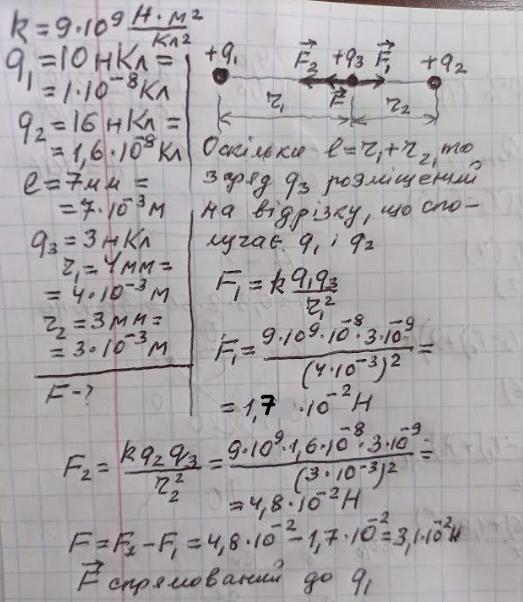 k = 9·10⁹ Н·м²/Кл²
q₁ = 10 нКл =
= 1·10⁻⁸ Кл
q₂ = 16 нКл =
= 1,6·10⁻⁸ Кл
l = 7 мм =
= 7·10⁻³ м
q₃ = 3 нКл
r₁ = 4 мм =
= 4·10⁻³ м
r₂ = 3 мм =
= 3·10⁻³ м
F - ?
+q₁ F⃗₂ +q₃ F⃗₁ +q₂
F⃗
r₁ r₂
Оскільки l = r₁ + r₂, то
заряд q₃ розміщений
на відрізку, що спо-
лучає q₁ і q₂
F₁ = k q₁q₃/r₁²
F₁ = 9·10⁹·10⁻⁸·3·10⁻⁹/(4·10⁻³)² =
= 1,7 ·10⁻² Н
F₂ = kq₂q₃/r₂² = 9·10⁹·1,6·10⁻⁸·3·10⁻⁹/(3·10⁻³)² =
= 4,8·10⁻² Н
F = F₂ - F₁ = 4,8·10⁻² - 1,7·10⁻² = 3,1·10⁻² Н
F⃗ спрямований до q₁